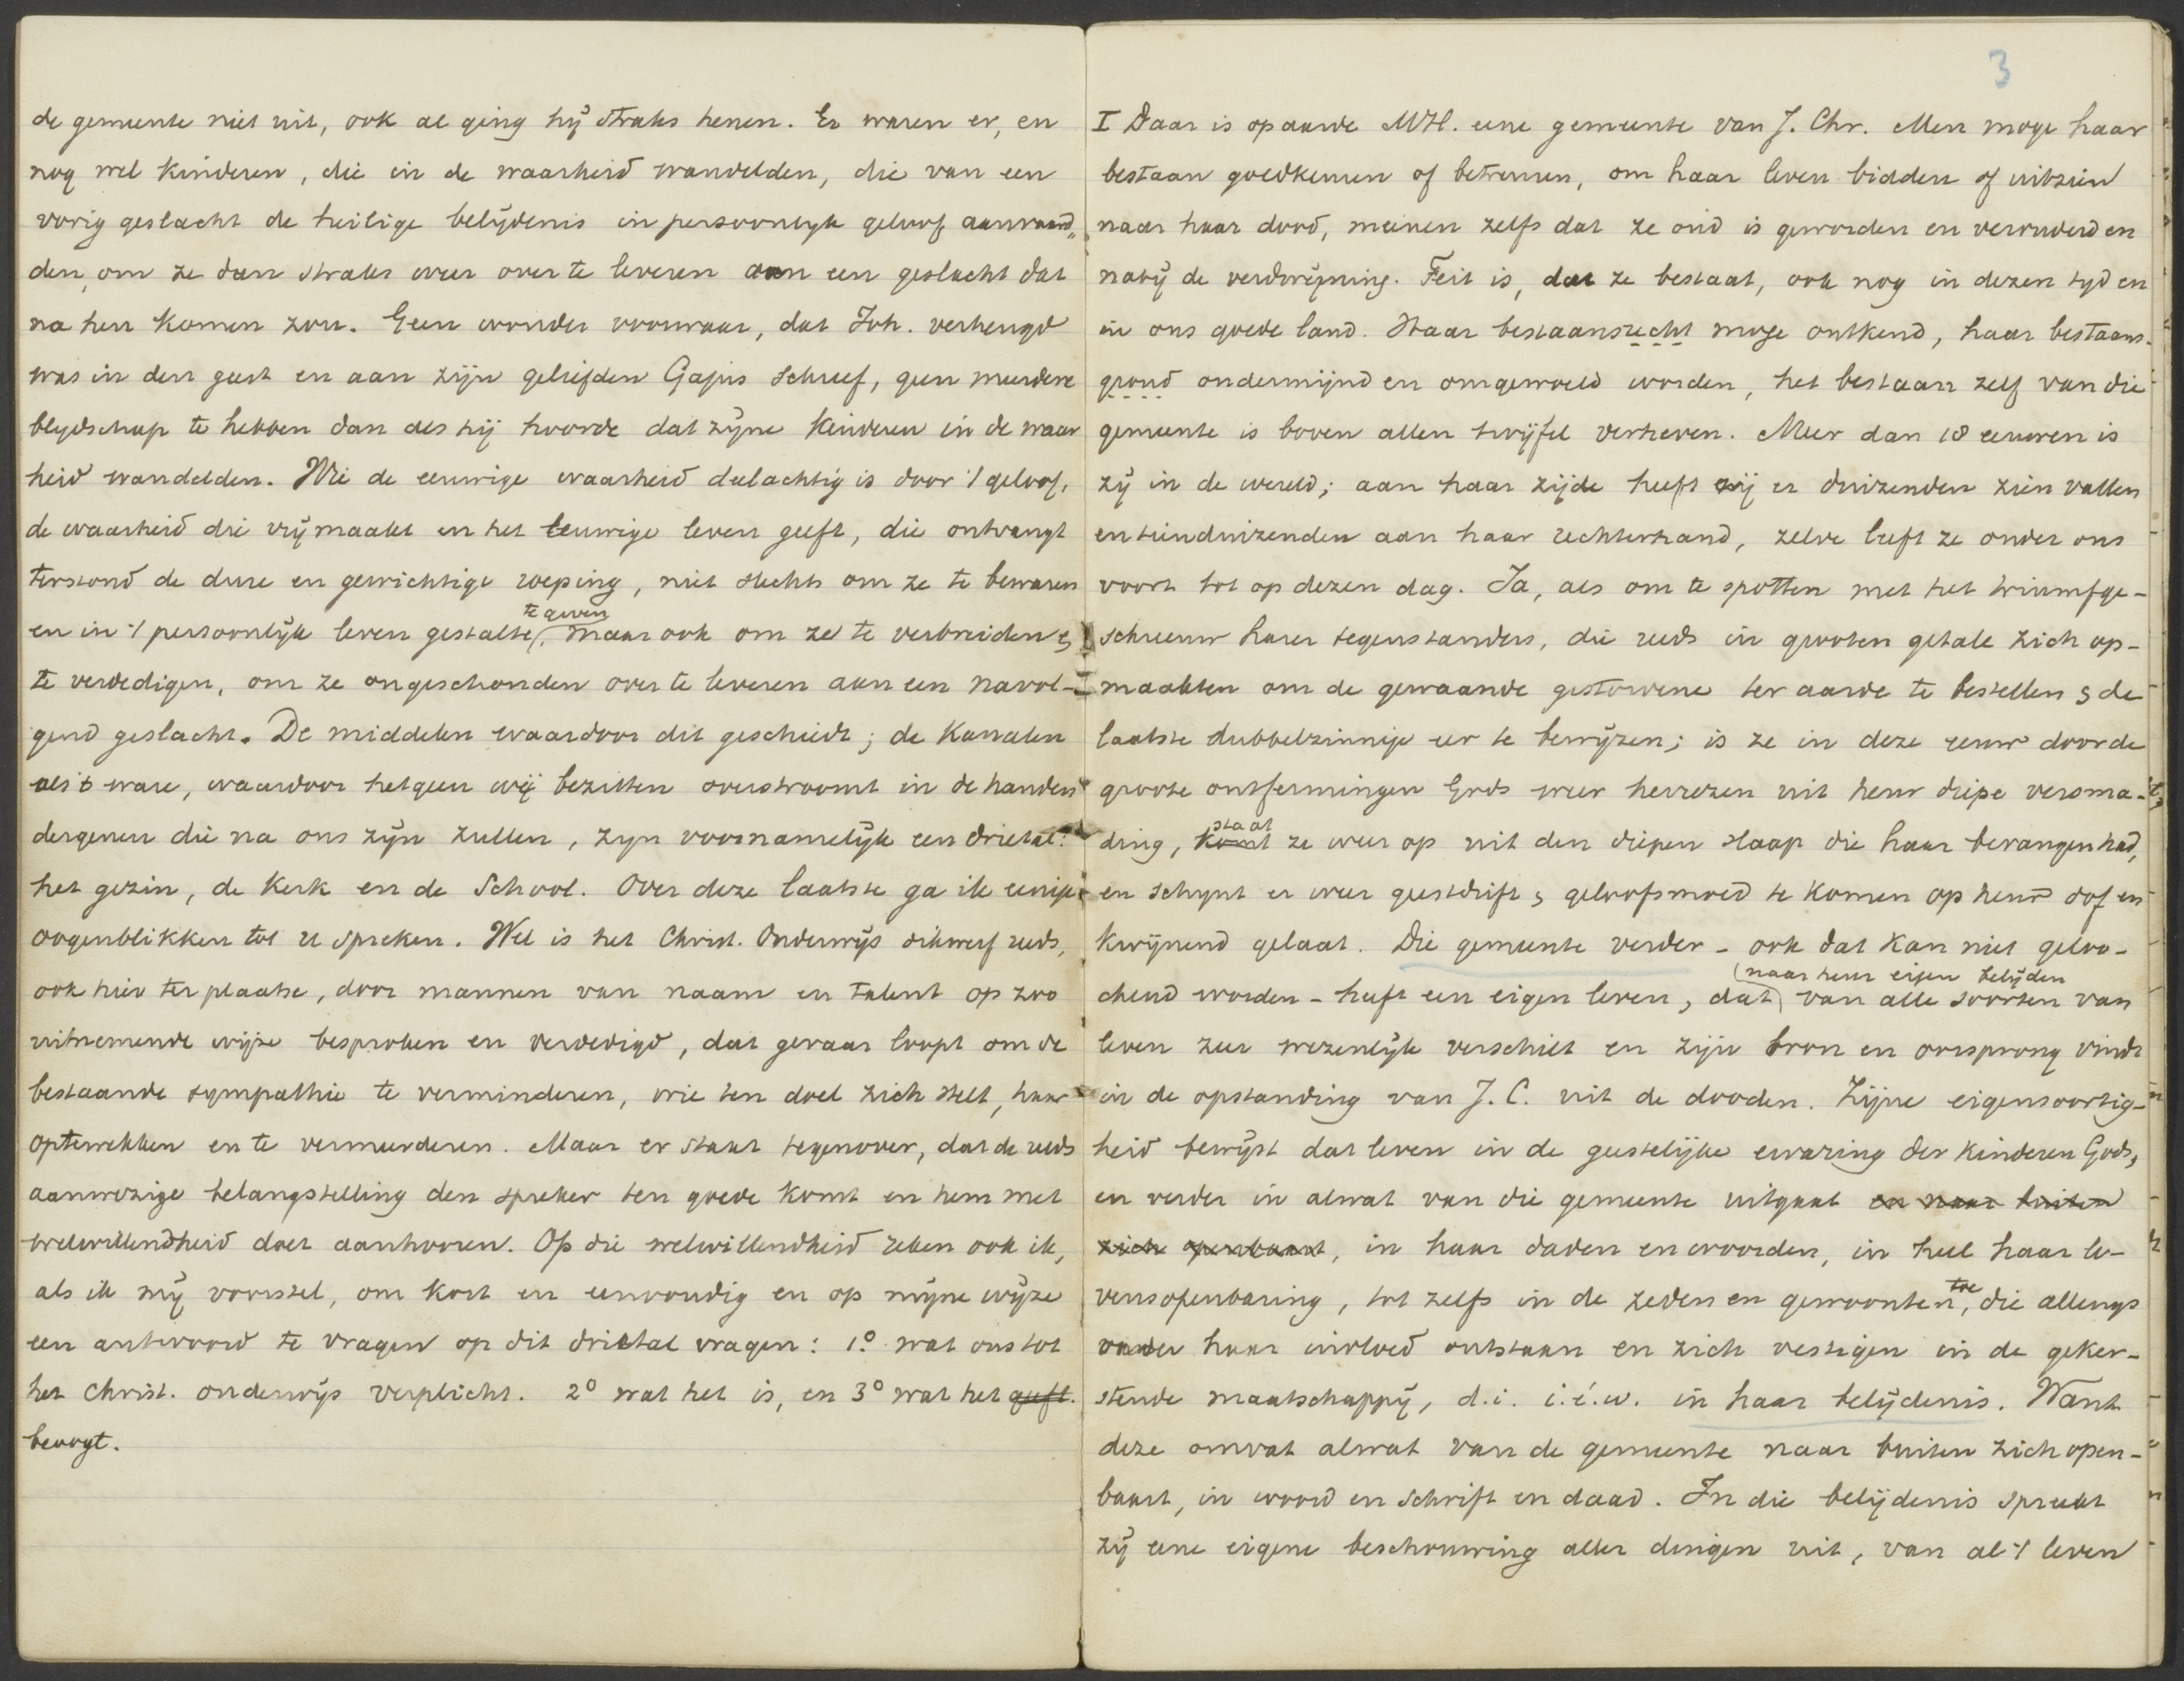 de gemeente niet uit, ook al ging hij straks henen. Er waren er, en
nog wel kinderen, die in de waarheid wandelden, die van een
vorig geslacht de heilige belijdenis in persoonlyk geloof aanvaard„
den, om ze dan straks weer over te leveren aan een geslacht dat
na hen komen zou. Geen wonder voorwaar, dat Joh. verheugd
was in den geest en aan zijn geliefden Gajus schreef, geen meerdere
blydschap te hebben dan als hij hoorde dat zyne kinderen in de waar
heid wandelden. Wie de eeuwige waarheid deelachtig is door 't geloof,
de waarheid die vrij maakt en het eeuwige leven geeft, die ontvangt
terstond de dure en gewichtige roeping, niet slechts om ze te bewaren
te geven
en in 't persoonlijk leven gestalte, maar ook om ze te verbreiden &
te verdedigen, om ze ongeschonden over te leveren aan een navol-
gend geslacht. De middelen waardoor dit geschiedt; de kanalen
als 't ware, waardoor hetgeen wij bezitten overstroomt in de handen
dergenen die na ons zyn zullen, zyn voornamelijk een drietal:
het gezin, de Kerk en de School. Over deze laatste ga ik eenige
oogenblikken tot u spreken. Wel is het Christ. Onderwijs dikwerf reeds,
ook hier ter plaatse, door mannen van naam en talent op zoo
uitnemende wijze besproken en verdedigd, dat gevaar loopt om de
bestaande sympathie te verminderen, wie ten doel zich stelt, haar
optewekken en te vermeerderen. Maar er staat tegenover, dat de reeds
aanwezige belangstelling den spreker ten goede komt en hem met
welwillendheid doet aanhooren. Op die welwillendheid reken ook ik,
als ik mij voorstel, om kort en eenvoudig en op mijne wijze
een antwoord te vragen op dit drietal vragen: 1.° wat ons tot
het Christ. onderwijs verplicht. 2° wat het is, en 3° wat het geeft.
beoogt.
3
I Daar is op aarde M H. eene gemeente van J. Chr. Men moge haar
bestaan goedkeuren of betreuren, om haar leven bidden of uitzien
naar haar dood, meenen zelfs dat ze oud is geworden en verouderd en
nabij de verdwijning. Feit is, dat ze bestaat, ook nog in dezen tyd en
in ons goede land. Haar bestaansrecht moge ontkend, haar bestaans-
grond ondermijnd en omgewoeld worden, het bestaan zelf van die
gemeente is boven allen twijfel verheven. Meer dan 18 eeuwen is
zij in de wereld; aan haar zijde heeft zij er duizenden zien vallen
en tienduizenden aan haar rechterhand, zelve leeft ze onder ons
voort tot op dezen dag. Ja, als om te spotten met het triumfge-
schreeuw harer tegenstanders, die reeds in grooten getale zich op-
maakten om de gewaande gestorvene ter aarde te bestellen & de
laatste dubbelzinnige eer te bewijzen; is ze in deze eeuw door de
groote ontfermingen Gods weer herrezen uit heur diepe versma-
staat
ding, komt ze weer op uit den diepen slaap die haar bevangen had,
en schynt er weer geestdrift & geloofsmoed te komen op heur dof en
kwijnend gelaat. Die gemeente verder - ook dat kan niet geloo-
(naar heur eigen belijden
chend worden - heeft een eigen leven, dat) van alle soorten van
leven zeer wezenlijk verschilt en zijn bron en oorsprong vindt
in de opstanding van J. C. uit de dooden. Zijne eigensoortig-
heid bewijst dat leven in de geestelijke ervaring der kinderen Gods,
en verder in alwat van die gemeente uitgaat en naar buiten
zich openbaart, in haar daden en woorden, in heel haar le-
toe
vensopenbaring, tot zelfs in de zeden en gewoonten, die allengs
onder haar invloed ontstaan en zich vestigen in de geker-
stende maatschappij, d.i. i.é.w. in haar belijdenis. Want
deze omvat alwat van de gemeente naar buiten zich open-
baart, in woord en schrift en daad. In die belijdenis spreekt
zij eene eigene beschouwing aller dingen uit, van al 't leven